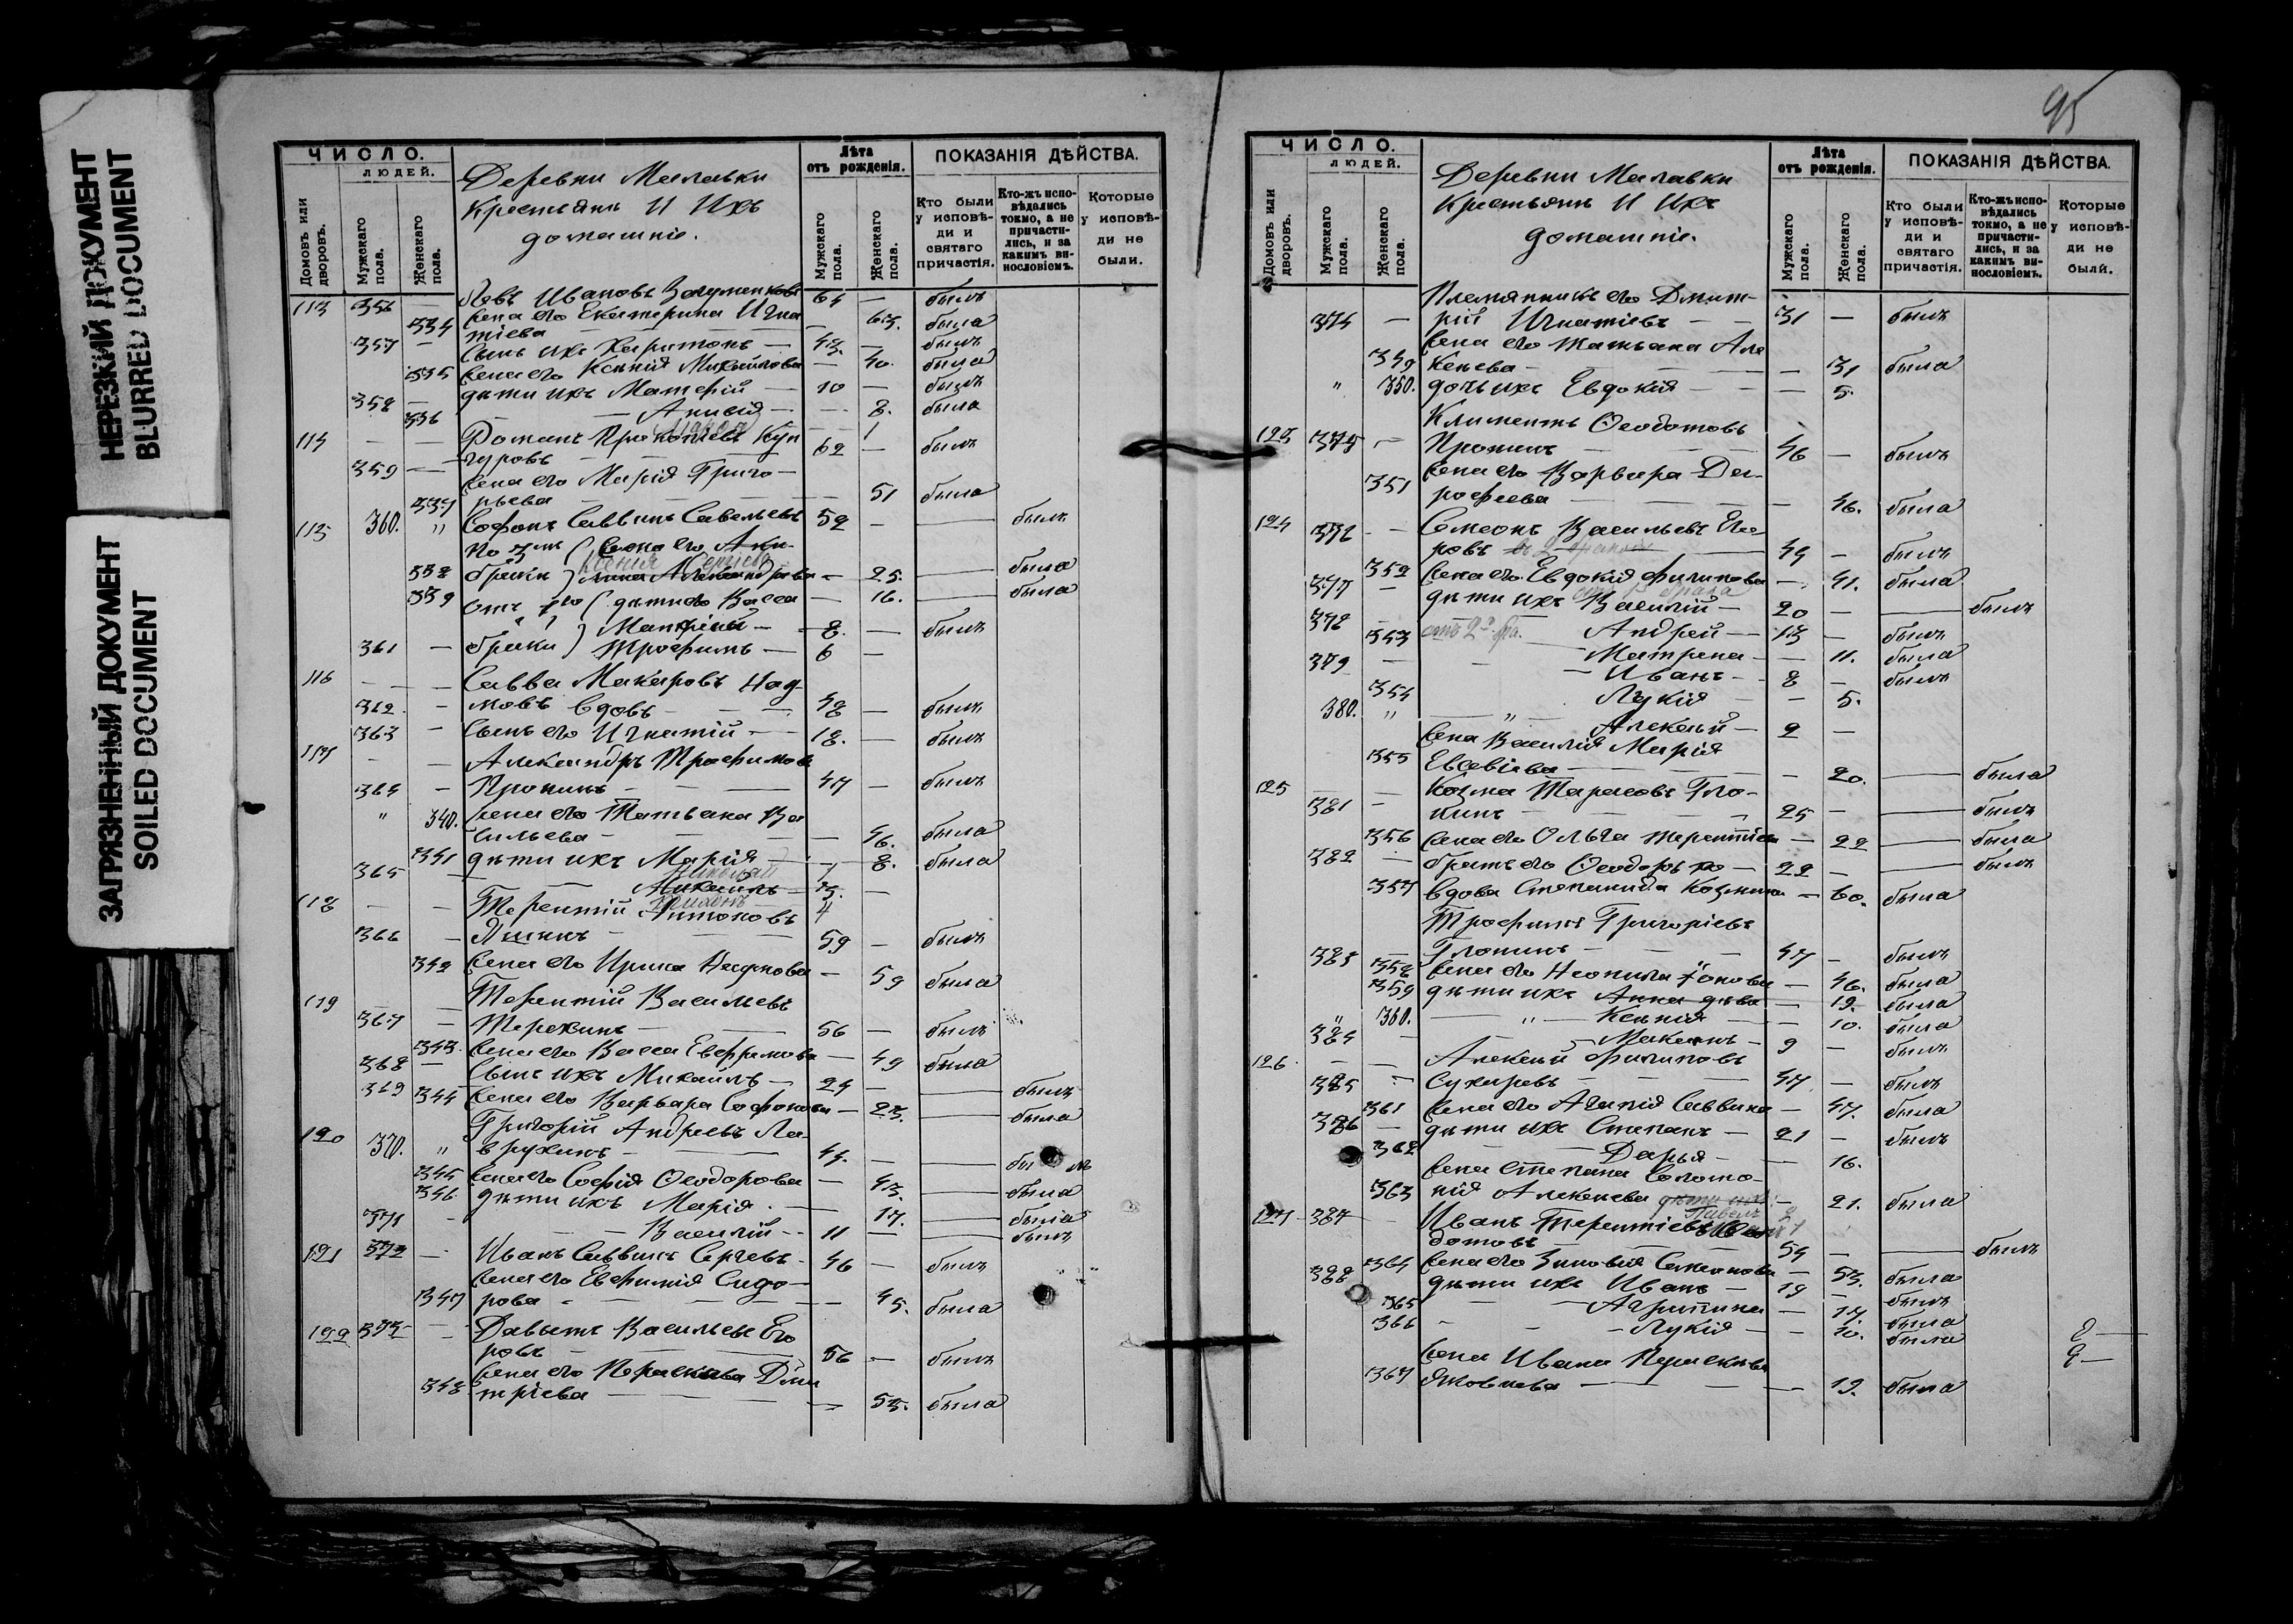 НЕРЕЗКИЙ ДОКУМЕНТ
BLURRED DOCUMENT
ЗАГРЯЗНЕННЫЙ ДОКУМЕНТ
SOILED DOCUMENT
ЧИСЛО.
ЛЮДЕЙ.
Домовъ или дворовъ.
Мужскаго пола.
Женскаго пола.
Деревни Малавки
Крестьянъ И Ихъ
домашніе.
Лѣта
отъ рожденія.
Мужскаго пола.
Женскаго пола.
ПОКАЗАНІЯ ДѢЙСТВА.
Кто были у исповѣ-ди и святаго причастія.
Кто-жъ испо-вѣдались токмо, а не причасти-лись, и за какимъ ви-нословіемъ.
Которые у исповѣ-ди не были.
113 356 — Левъ Ивановъ 64 — былъ
334 жена его Екатерина Игна — 63. была
тіева
357 — сынъ ихъ Харитонъ — 43. — былъ
335 жена его Ксенія Михайлова — 40. была
358 — дѣти ихъ 10 — былъ
336 — 8. была
114 — — Романъ Прокопіевъ Кун
359 — гуровъ 62 — былъ
жена его Марія Григо-
337 рьева — 51 была
115 360. " Софонъ Саввинъ Савельевъ 52 — — былъ
по 3мъ жена его
338 бракѣ Александрова — 25. — была
339 отъ дѣти его Васса — 16. — была
8. — былъ
361 — браки Трофимъ — 6 —
116 — — Савва Макаровъ
362. — вдовъ 48 — былъ
363 — сынъ его Игнатій — 18. — былъ
117 — — Александръ Трофимов
364 — Пронинъ 47 — былъ
" 340. жена его Татьана Ва
сильева — 46. была
341 дѣти ихъ Марія — 8. была
365 Николай 7
Михаилъ 3. —
118 — — Терентій Антоновъ 4
366 — Яшинъ 59 — былъ
342 жена его Ирина Наумова — 59 была
119 — — Терентій Васильевъ
367 — Терехинъ 56 — былъ
343. жена его Васса Евфимова — 49 была
368 — сынъ ихъ Михаилъ — 24 — — былъ
369 344 жена его Варвара Софонова — 23. — была
120 Григорій Андреевъ Ла-
370. " врухинъ 44. — — былъ
345 жена его Софія Ѳеодорова — 43. — была
346. дѣти ихъ Марія — 17. — была
371 — Василій — 11 — — былъ
121 372 — Иванъ Саввинъ Сергеевъ 46 — былъ
жена его Евфимія Сидо-
347 рова — 45. была
122 373 — Давыдъ Васильевъ Его
ровъ 56 — былъ
жена его Параскева Дми
348 тріева — 53. была
95
ЧИСЛО.
ЛЮДЕЙ.
Домовъ или дворовъ.
Мужскаго пола.
Женскаго пола.
Деревни Малавки
Крестьянъ И Ихъ
домашніе.
Лѣта
отъ рожденія.
Мужскаго пола.
Женскаго пола.
ПОКАЗАНІЯ ДѢЙСТВА.
Кто были у исповѣ-ди и святаго причастія.
Кто-жъ испо-вѣдались токмо, а не причасти-лись, и за какимъ ви-нословіемъ.
Которые у исповѣ-ди не были.
Племянникъ его Дмит-
374 — рій Игнатіевъ — 31 — былъ
жена его Татьана Але
349 ксеева — 31 была
" 350. дочь ихъ Евдокія — 5.
Климентъ Ѳеодотовъ
123 375 — Пронинъ 46 — былъ
жена его Варвара До-
351 рофеева — 46. была
124 376 — Симеонъ Васильевъ Его
ровъ 44 — былъ
352 жена его Евдокія Филипова — 41. была
377 — дѣти ихъ Василій — 20 — — былъ
378 — отъ 2 бра. Андрей — 13 — былъ
353 Матрена — 11. была
379 — Иванъ — 8 — былъ
354 Лукія — 5.
380. " Алексѣй — 2 —
жена Василія Марія
355 Евсевіева — 20. — была
125 Козма Тарасовъ Гло-
381 — кинъ 25 — — былъ
356 жена его Ольга Терентіева — 22 — была
382 — братъ его Ѳеодоръ — 22 — — былъ
357 вдова Степанида Козмина — 60. была
Трофимъ Григоріевъ
383 — Глокинъ 47 — былъ
358 жена его Неонила — 46. была
359 дѣти ихъ Анна дѣва — 19. была
" 360. Ксенія — 10. была
384 — 9 — былъ
126 — — Алексѣй Филиповъ
385 — Сухаревъ 47 — былъ
361 жена его Агапія Саввина — 47. была
386 — дѣти ихъ Степанъ — 21 — былъ
362 Дарья — 16.
жена Степана Соломо-
363 нія Алексеева дѣти ихъ — 21. была
Павелъ 2
127 387 — Иванъ Терентіевъ
дотовъ 54 — — былъ
364 жена его Зиновія Симонова — 53. была
388 дѣти ихъ Иванъ — 19 — былъ
365 Агрипина — 17. была
366 Лукія — 10. была
жена Ивана Параскева
367 Яковлева — 19. была